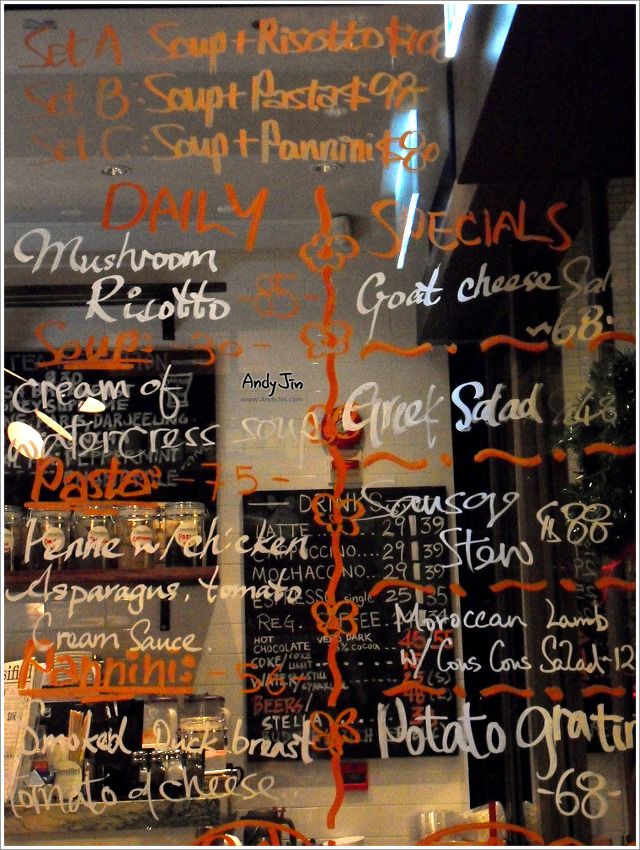 Set A Soup + Risotto $108
Set B: Soup + Pasta $98
Set C: Soup + Pannini $80
DAILY SPECIALS
Mushroom
Risotto -85-
Soup: -30-
Cream of
WaterCress soup
Pasta: -75-
Penne w/ chicken
Asparagus, tomato
Cream Sauce.
Pannini: -50-
Smoked Duck breast
tomato & cheese..
Goat cheese Sal
~68-
Greek Salad
Sausag
Stew $88
Moroccan Lamb
w/ Cous Cous Salad -12
Potato gratin
-68-
Andy Jin
www.AndyJin.com
8.30
DARJEELING
DRINKS
LATTE 29 39
CINO.... 29 39
MOCHACCINO.... 29 39
ESPRESSO single 25 35
REG.
HOT
CHOCOLATE VERY DARK
% cocoa
COKE / COKE
LIGHT
WATER / STILL
SPARKLING
BEERS/
STELLA